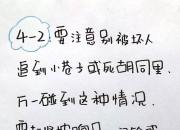 4-2:要注意别被坏人
追到小巷子或死胡同里.
万一碰到这种情况.